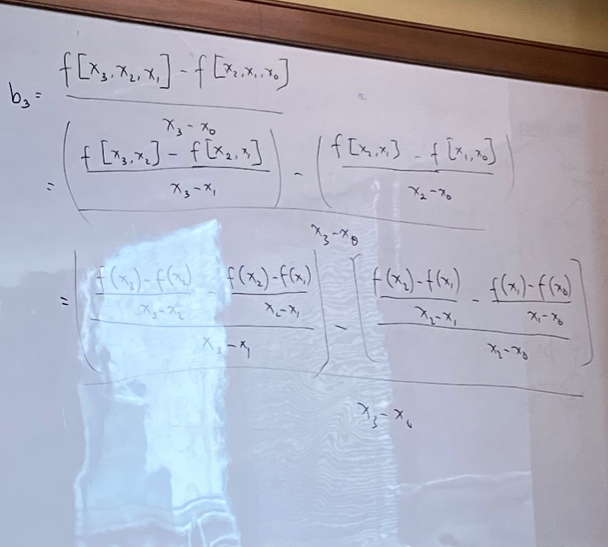 b₃ = (f[x₃, x₂, x₁] - f[x₂, x₁, x₀]) / (x₃ - x₀)
= ((f[x₃, x₂] - f[x₂, x₁]) / (x₃ - x₁)) - ((f[x₂, x₁] - f[x₁, x₀]) / (x₂ - x₀)) / (x₃ - x₀)
= (((f(x₃) - f(x₂)) / (x₃ - x₂) - (f(x₂) - f(x₁)) / (x₂ - x₁)) / (x₃ - x₁)) - [((f(x₂) - f(x₁)) / (x₂ - x₁) - (f(x₁) - f(x₀)) / (x₁ - x₀)) / (x₂ - x₀)] / (x₃ - x₀)